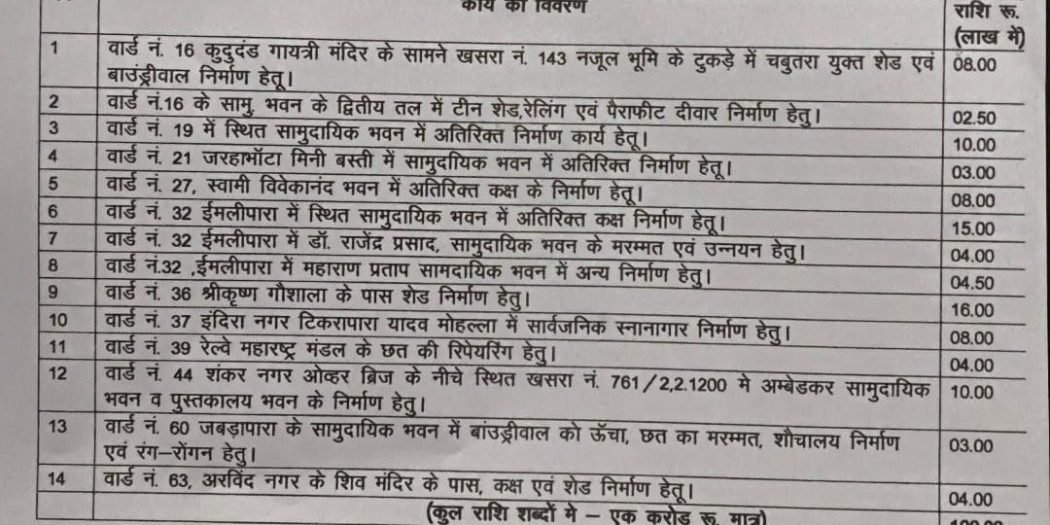 कार्य का विवरण
राशि रू.
(लाख में)
1 वार्ड नं. 16 कुदुदंड गायत्री मंदिर के सामने खसरा नं. 143 नजूल भूमि के टुकड़े में चबुतरा युक्त शेड एवं 08.00
बाउंड्रीवाल निर्माण हेतू।
2 वार्ड नं.16 के सामु. भवन के द्वितीय तल में टीन शेड,रेलिंग एवं पैराफीट दीवार निर्माण हेतु। 02.50
3 वार्ड नं. 19 में स्थित सामुदायिक भवन में अतिरिक्त निर्माण कार्य हेतू। 10.00
4 वार्ड नं. 21 जरहाभॉटा मिनी बस्ती में सामुदायिक भवन में अतिरिक्त निर्माण हेतू। 03.00
5 वार्ड नं. 27, स्वामी विवेकानंद भवन में अतिरिक्त कक्ष के निर्माण हेतू। 08.00
6 वार्ड नं. 32 ईमलीपारा में स्थित सामुदायिक भवन में अतिरिक्त कक्ष निर्माण हेतू। 15.00
7 वार्ड नं. 32 ईमलीपारा में डॉ. राजेंद्र प्रसाद, सामुदायिक भवन के मरम्मत एवं उन्नयन हेतु। 04.00
8 वार्ड नं.32 ,ईमलीपारा में महाराण प्रताप सामदायिक भवन में अन्य निर्माण हेतु। 04.50
9 वार्ड नं. 36 श्रीकृष्ण गौशाला के पास शेड निर्माण हेतु। 16.00
10 वार्ड नं. 37 इंदिरा नगर टिकरापारा यादव मोहल्ला में सार्वजनिक स्नानागार निर्माण हेतु। 08.00
11 वार्ड नं. 39 रेल्वे महाराष्ट्र मंडल के छत की रिपेयरिंग हेतु। 04.00
12 वार्ड नं. 44 शंकर नगर ओव्हर ब्रिज के नीचे स्थित खसरा नं. 761/2,2.1200 मे अम्बेडकर सामुदायिक 10.00
भवन व पुस्तकालय भवन के निर्माण हेतु।
13 वार्ड नं. 60 जबड़ापारा के सामुदायिक भवन में बांउड्रीवाल को ऊँचा, छत का मरम्मत, शौचालय निर्माण 03.00
एवं रंग–रोंगन हेतु।
14 वार्ड नं. 63, अरविंद नगर के शिव मंदिर के पास, कक्ष एवं शेड निर्माण हेतू। 04.00
(कुल राशि शब्दों मे – एक करोड़ रू. मात्र) 100.00